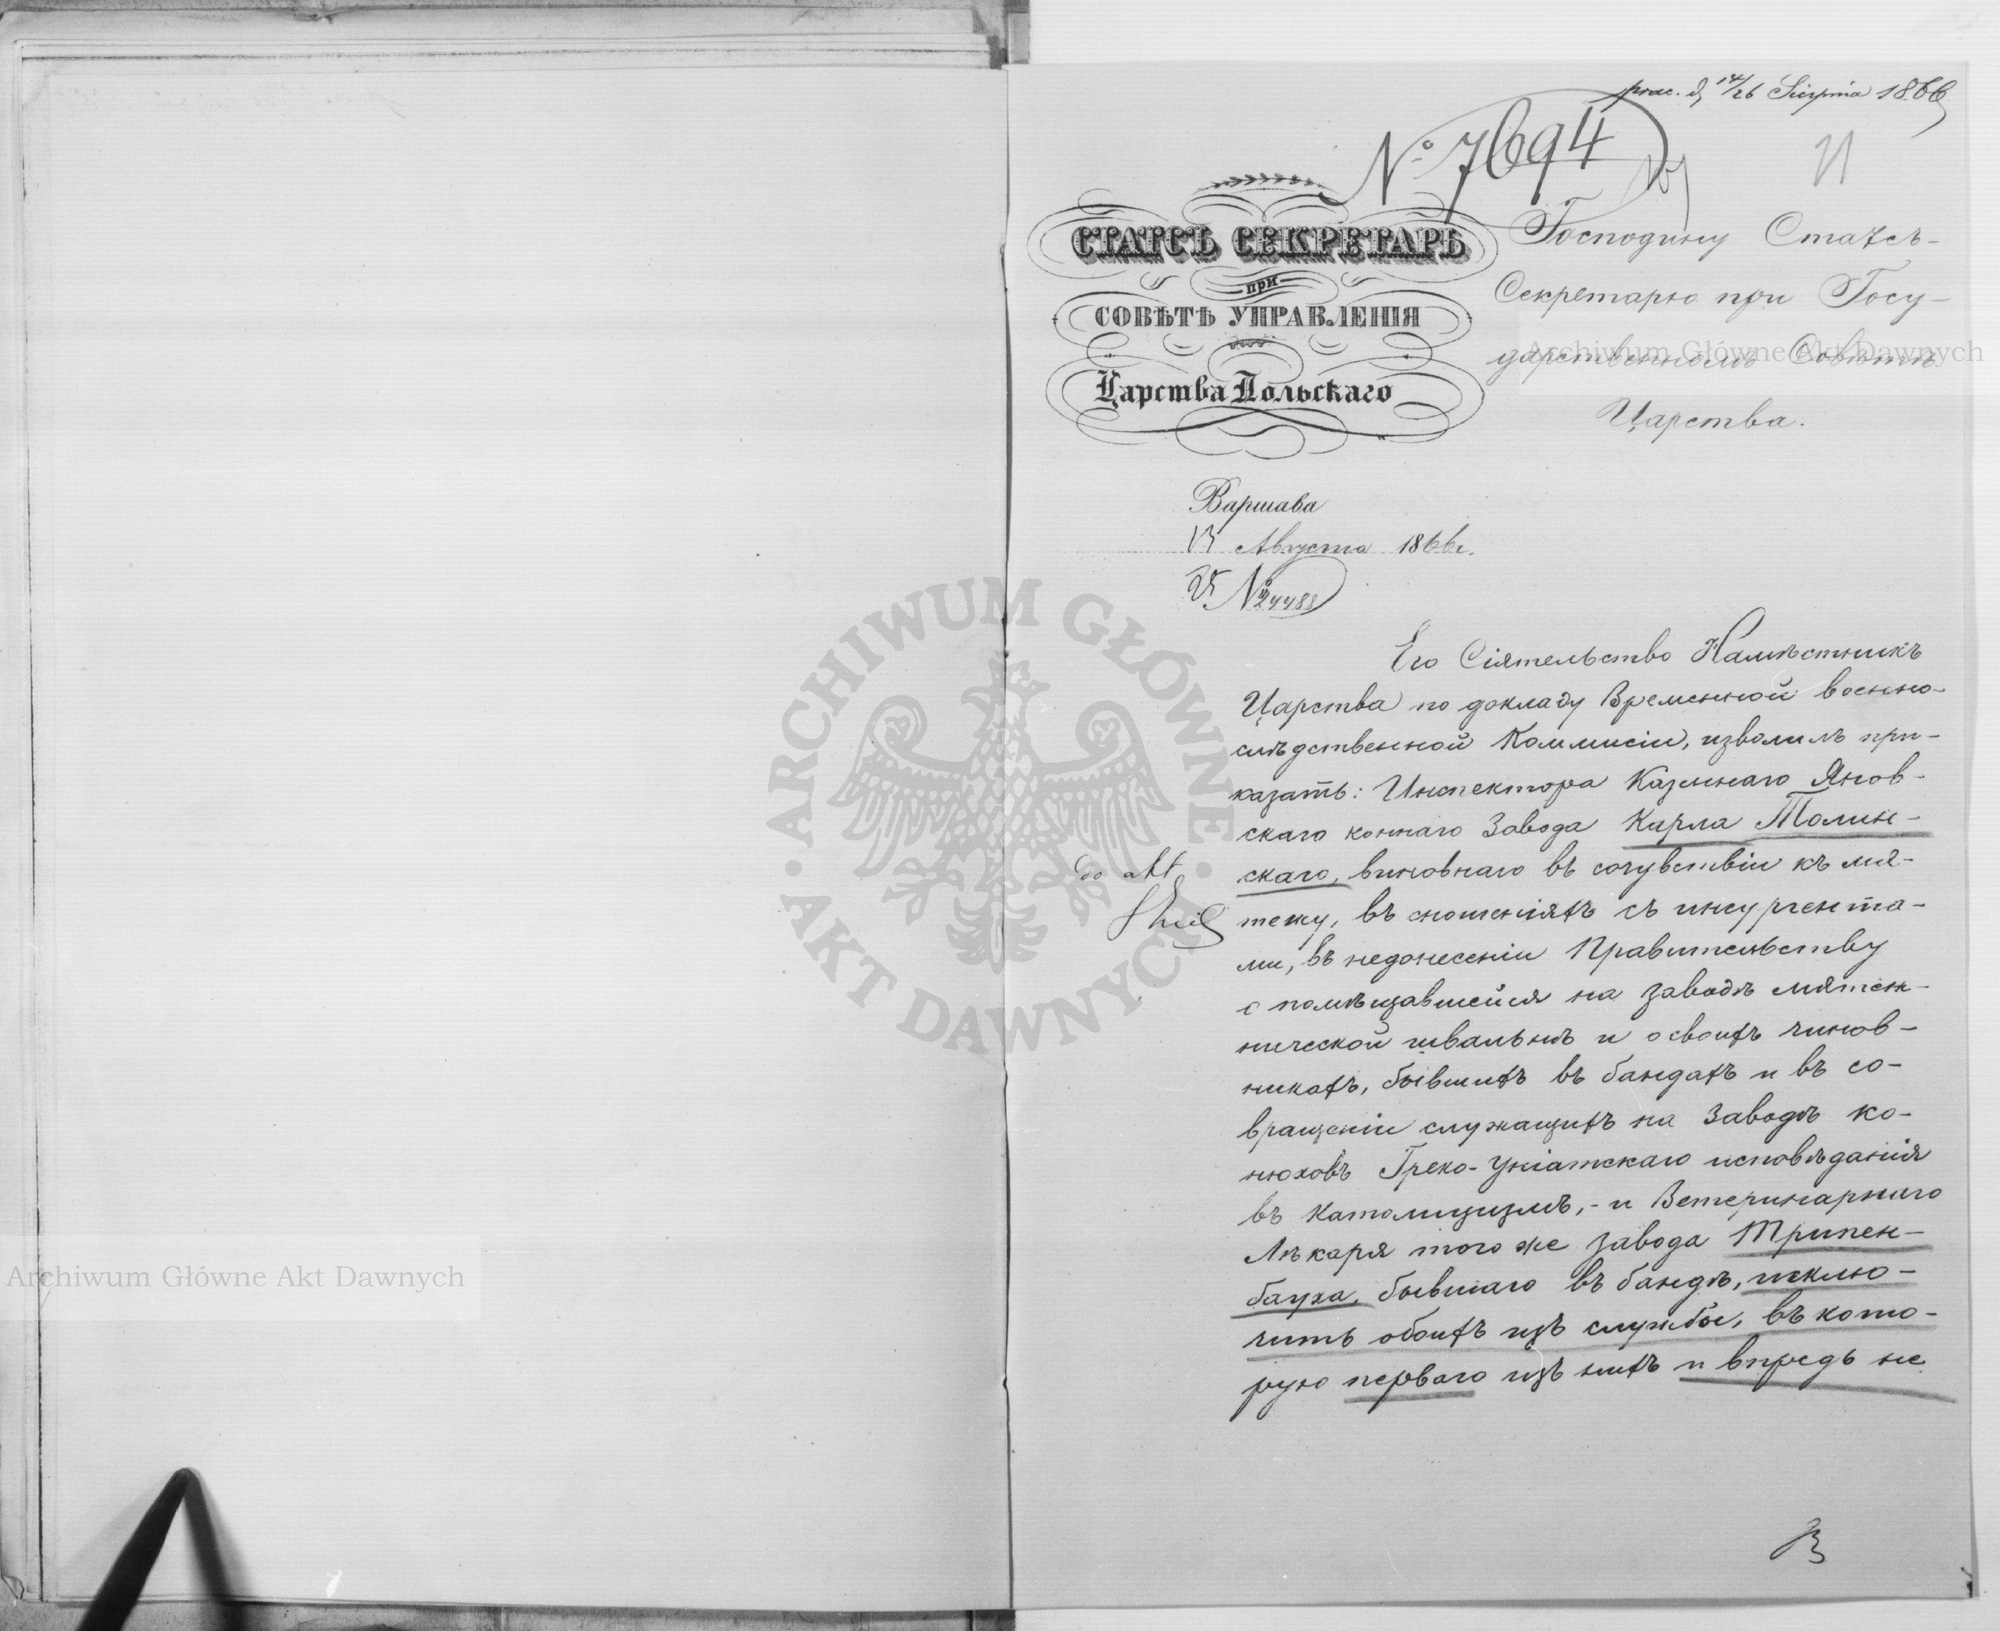 prae. d. 14/26 Sierpnia 1866
№ 7694
СТАТСЪ СЕКРЕТАРЬ
при
СОВѢТѢ УПРАВЛЕНІЯ
Царства Польскаго
Господину Статсъ-
Секретарю при Госу-
дарственномъ Совѣтѣ
Царства.
Варшава
13 Августа 1866 г.
25 №
Его Сіятельство Намѣстникъ
Царства по докладу Временной военно-
слѣдственной Коммисіи, изволилъ при-
казать: Инспектора Казеннаго Янов-
скаго коннаго Завода Карла Толин-
скаго, виновнаго въ сочувствіи къ мя-
тежу, въ сношеніяхъ съ инсургента-
ми, въ недонесеніи Правительству
о помѣщавшейся на заводѣ мятеж-
нической швальнѣ и о своихъ чинов-
никахъ, бывшихъ въ бандахъ и въ со-
вращеніи служащихъ на Заводѣ ко-
нюховъ Греко-Уніатскаго исповѣданія
въ Католицизмъ,- и Ветеринарнаго
Лѣкаря того же завода Трипен-
бауха, бывшаго въ бандѣ, исклю-
чить обоихъ изъ службы, въ кото-
рую перваго изъ нихъ и впредь не
do akt
Archiwum Główne Akt Dawnych
Archiwum Główne Akt Dawnych
ARCHIWUM GŁÓWNE AKT DAWNYCH